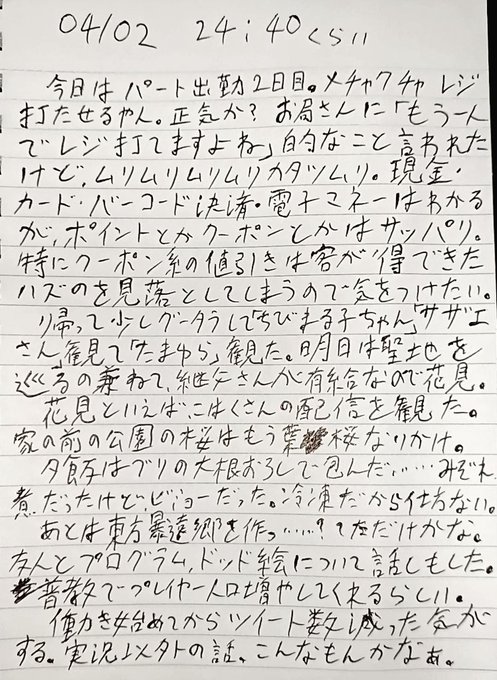 04/02　24:40くらい
今日はパート出勤2日目。メチャクチャレジ
打たせるやん。正気か? お局さんに「もう一人
でレジ打てますよね」的なこと言われた
けど、ムリムリムリムリカタツムリ。現金・
カード・バーコード決済・電子マネーはわかる
が、ポイントとかクーポンとかはサッパリ。
特にクーポン系の値引きは客が得できた
ハズのを見落としてしまうので気をつけたい。
帰って少しグータラして「ちびまる子ちゃん」「サザエ
さん」観て「たまゆら」観た。明日は聖地を
巡るの兼ねて、継父さんが有給なので花見。
花見といえば、こはくさんの配信を観た。
家の前の公園の桜はもう葉桜なりかけ。
夕飯はブリの大根おろしで包んだ……みぞれ
煮だったけど、ビミョーだった。冷凍だから仕方ない。
あとは東方暴遠郷を作っ……?ただけかな。
友人とプログラム、ドット絵について話しもした。
普教でプレイヤー人口増やしてくれるらしい。
働き始めてからツイート数減った気が
する。実況以外の話。こんなもんかなぁ。